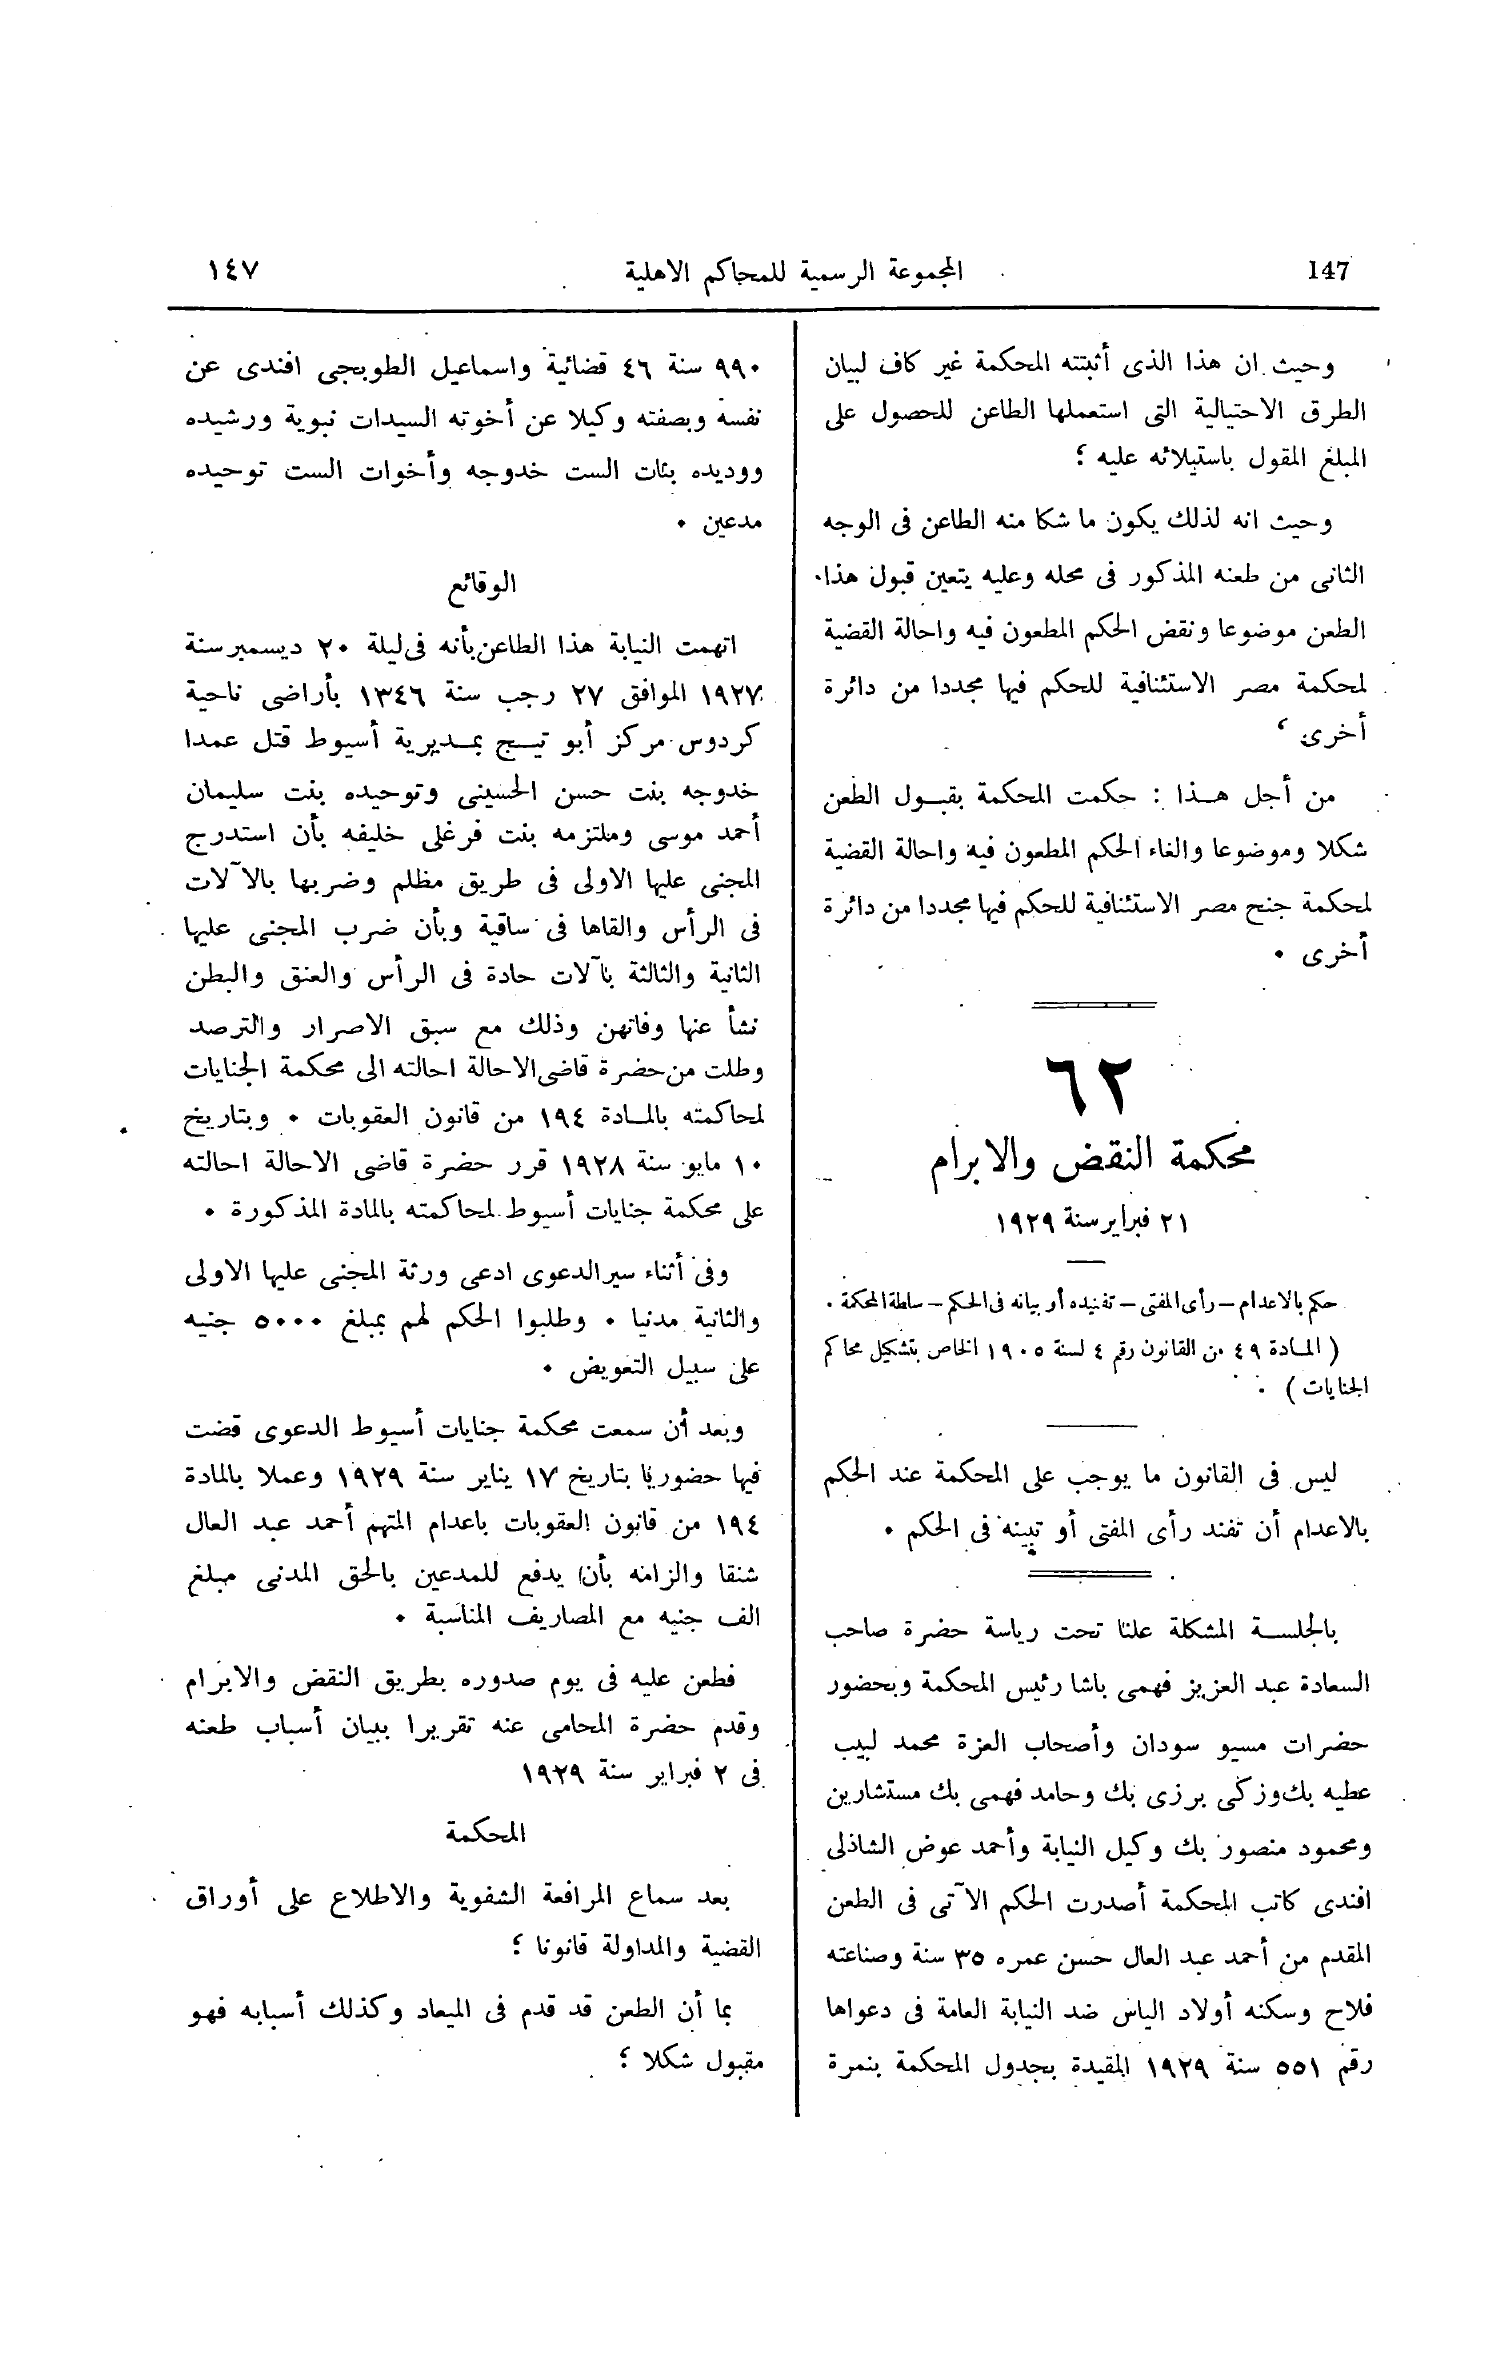 147 المجموعة الرسمية للمحاكم الاهلية ١٤٧
وحيث ان هذا الذى أثبتته المحكمة غير كاف لبيان
الطرق الاحتيالية التى استعملها الطاعن للحصول على
المبلغ المقول باستيلائه عليه ؛
وحيث انه لذلك يكون ما شكا منه الطاعن فى الوجه
الثانى من طعنه المذكور فى محله وعليه يتعين قبول هذا
الطعن موضوعا ونقض الحكم المطعون فيه واحالة القضية
لمحكمة مصر الاستئنافية للحكم فيها مجددا من دائرة
أخرى ،
من أجل هـذا : حكمت المحكمة بقبـول الطعن
شكلا وموضوعا والغاء الحكم المطعون فيه واحالة القضية
لمحكمة جنح مصر الاستئنافية للحكم فيها مجددا من دائرة
أخرى ٠
٦٢
محكمة النقض والابرام
٢١ فبراير سنة ١٩٢٩
حكم بالاعدام – رأى المفتى – تفنيده أو بيانه فى الحكم – سلطة المحكمة .
( المـادة ٤٩ من القانون رقم ٤ لسنة ١٩٠٥ الخاص بتشكيل محاكم
الجنايات ) .
ليس فى القانون ما يوجب على المحكمة عند الحكم
بالاعدام أن تفند رأى المفتى أو تبينه فى الحكم ٠
بالجلسـة المشكلة علنا تحت رياسة حضرة صاحب
السعادة عبد العزيز فهمى باشا رئيس المحكمة وبحضور
حضرات مسيو سودان وأصحاب العزة محمد لبيب
عطيه بك وزكى برزى بك وحامد فهمى بك مستشارين
ومحمود منصور بك وكيل النيابة وأحمد عوض الشاذلى
افندى كاتب المحكمة أصدرت الحكم الآتى فى الطعن
المقدم من أحمد عبد العال حسن عمره ٣٥ سنة وصناعته
فلاح وسكنه أولاد الياس ضد النيابة العامة فى دعواها
رقم ٥٥١ سنة ١٩٢٩ المقيدة بجدول المحكمة بنمرة
٩٩٠ سنة ٤٦ قضائية واسماعيل الطوبجى افندى عن
نفسه وبصفته وكيلا عن أخوته السيدات نبوية ورشيده
ووديده بنات الست خدوجه وأخوات الست توحيده
مدعين ٠
الوقائع
اتهمت النيابة هذا الطاعن بأنه فى ليلة ٢٠ ديسمبر سنة
١٩٢٧ الموافق ٢٧ رجب سنة ١٣٤٦ بأراضى ناحية
كردوس مركز أبو تيـج بمـديرية أسيوط قتل عمدا
خدوجه بنت حسن الحسينى وتوحيده بنت سليمان
أحمد موسى وملتزمه بنت فرغلى خليفه بأن استدرج
المجنى عليها الاولى فى طريق مظلم وضربها بالآلات
فى الرأس والقاها فى ساقية وبأن ضرب المجنى عليها
الثانية والثالثة بآلات حادة فى الرأس والعنق والبطن
نشأ عنها وفاتهن وذلك مع سبق الاصرار والترصد
وطلت من حضرة قاضى الاحالة احالته الى محكمة الجنايات
لمحاكمته بالمـادة ١٩٤ من قانون العقوبات ٠ وبتاريخ
١٠ مايو سنة ١٩٢٨ قرر حضرة قاضى الاحالة احالته
على محكمة جنايات أسيوط لمحاكمته بالمادة المذكورة ٠
وفى أثناء سير الدعوى ادعى ورثة المجنى عليها الاولى
والثانية مدنيا ٠ وطلبوا الحكم لهم بمبلغ ٥٠٠٠ جنيه
على سبيل التعويض ٠
وبعد أن سمعت محكمة جنايات أسيوط الدعوى قضت
فيها حضوريا بتاريخ ١٧ يناير سنة ١٩٢٩ وعملا بالمادة
١٩٤ من قانون العقوبات باعدام المتهم أحمد عبد العال
شنقا والزامه بأن يدفع للمدعين بالحق المدنى مبلغ
الف جنيه مع المصاريف المناسبة ٠
فطعن عليه فى يوم صدوره بطريق النقض والابرام
وقدم حضرة المحامى عنه تقريرا ببيان أسباب طعنه
فى ٢ فبراير سنة ١٩٢٩
المحكمة
بعد سماع المرافعة الشفوية والاطلاع على أوراق
القضية والمداولة قانونا ؛
بما أن الطعن قد قدم فى الميعاد وكذلك أسبابه فهو
مقبول شكلا ؛